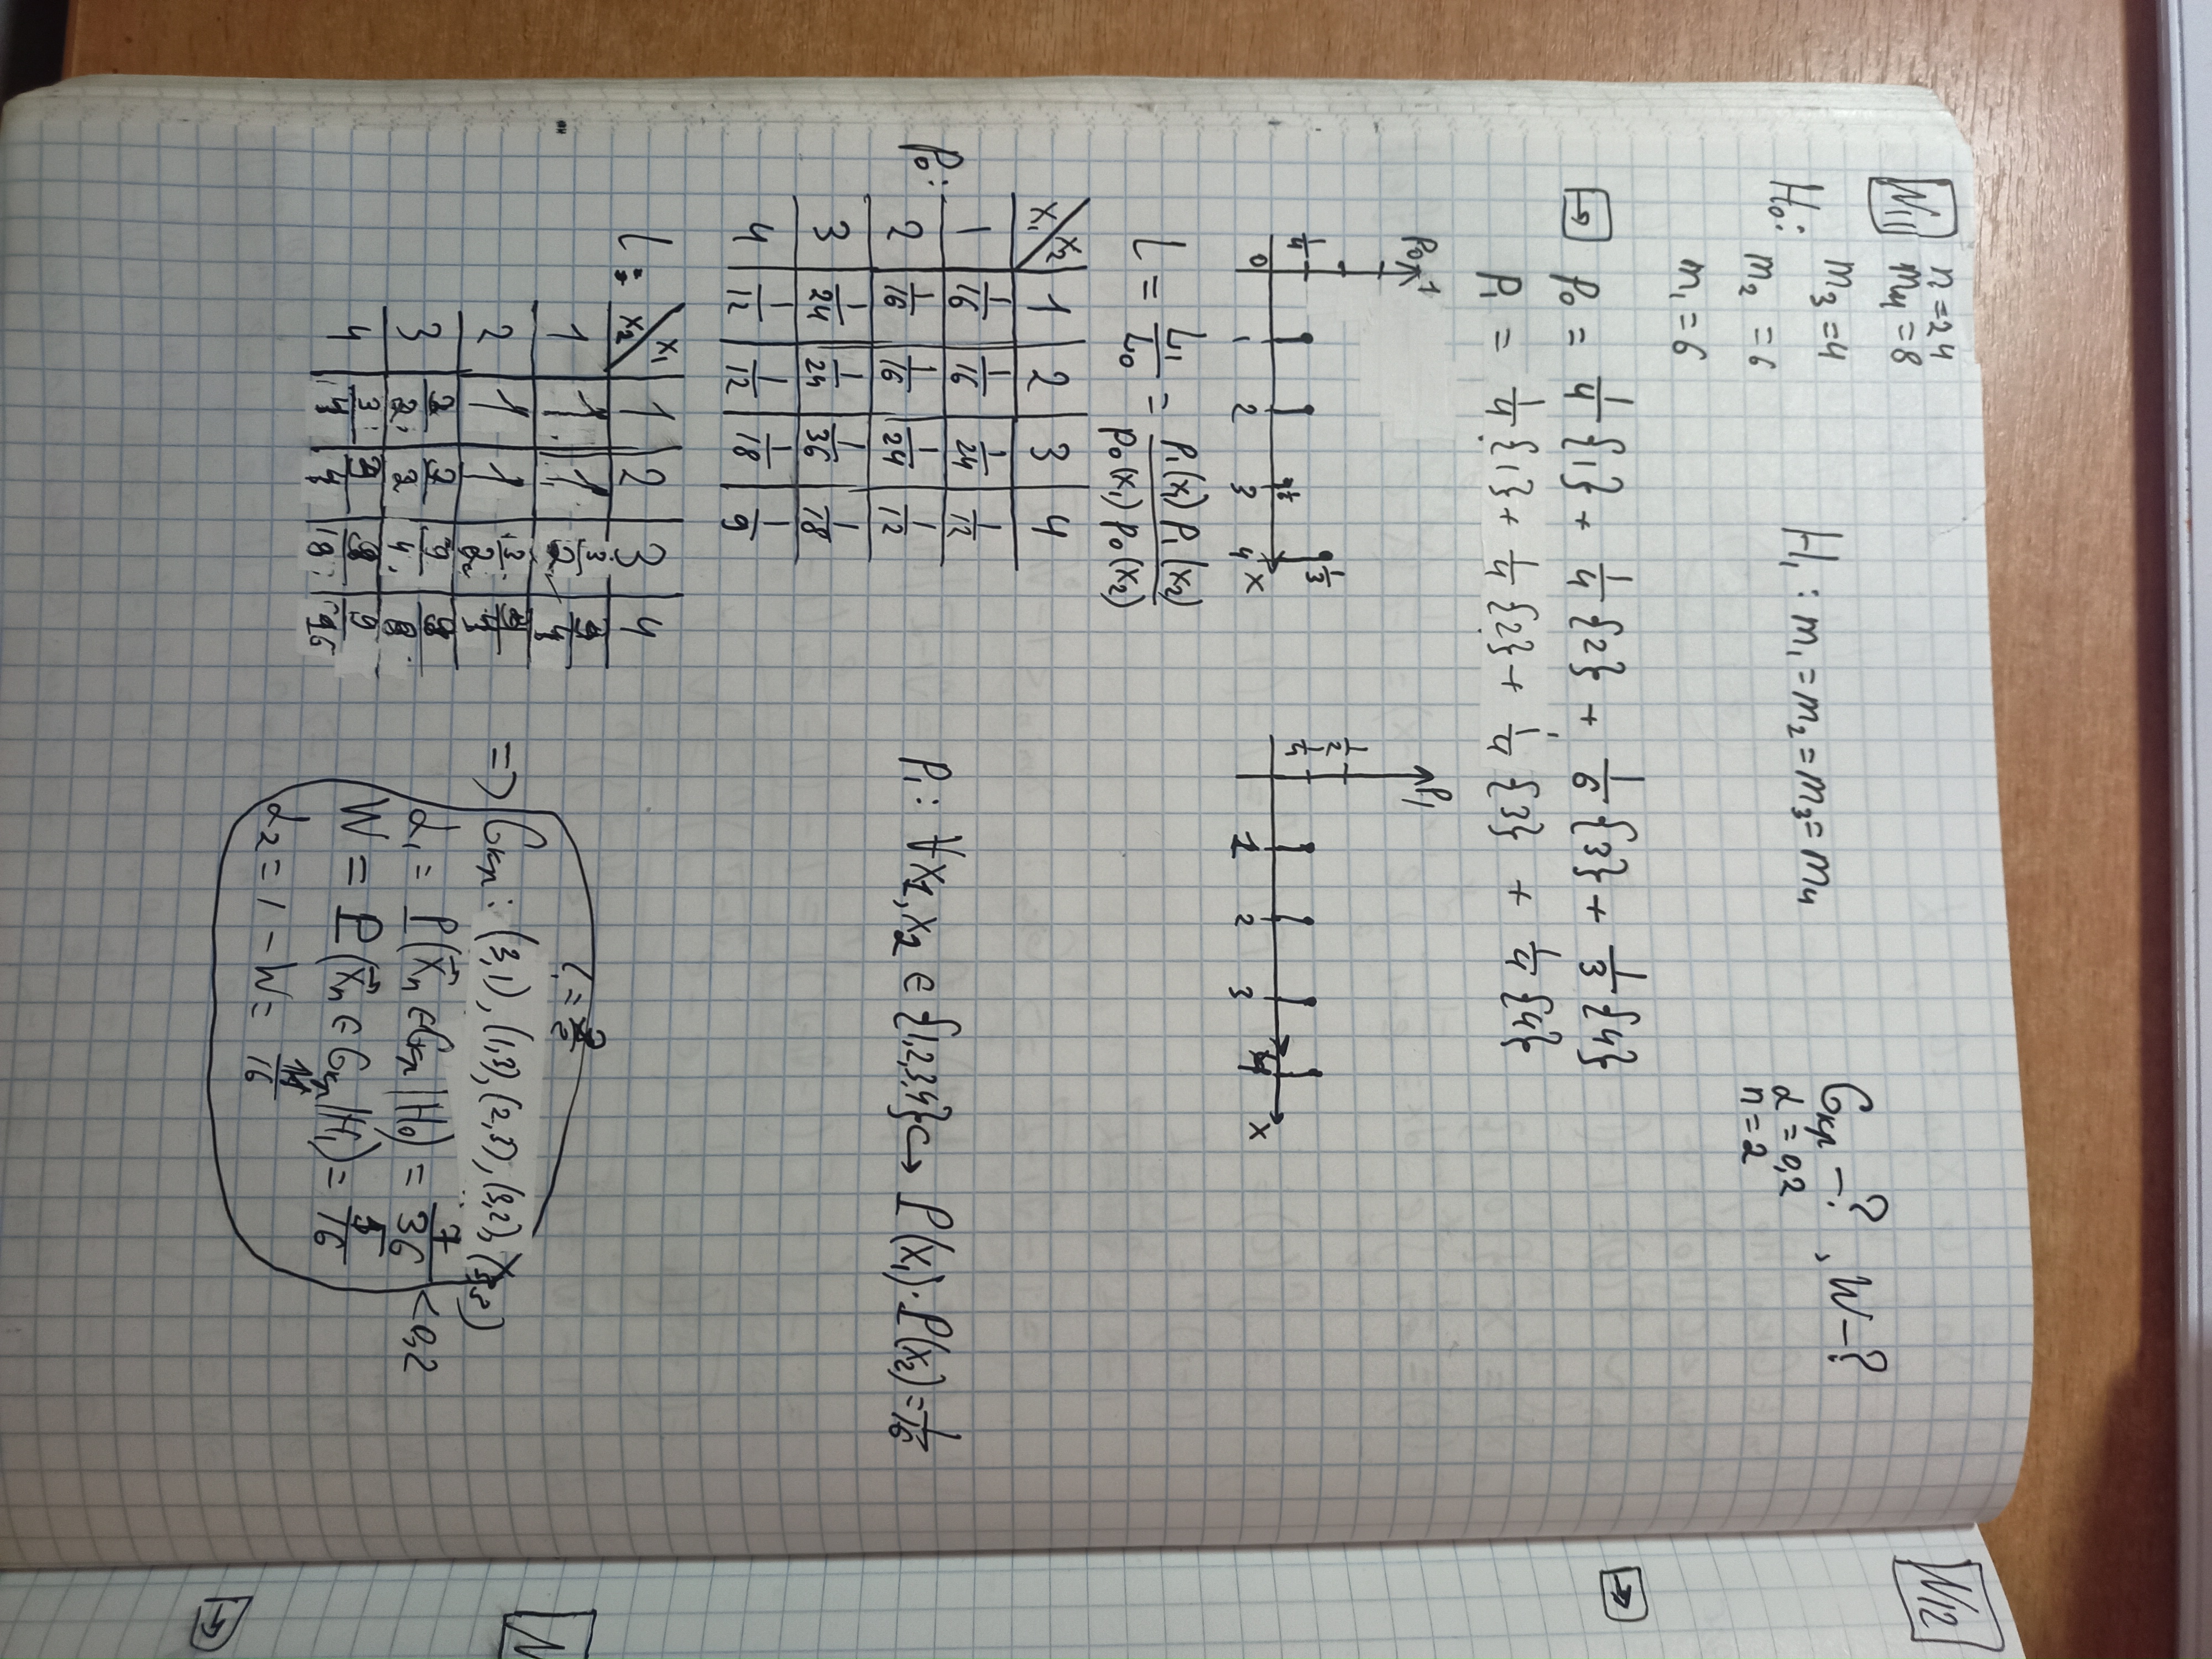 N11
n = 24
m4 = 8
m3 = 4
H0:
m2 = 6
m1 = 6
H1 : m1 = m2 = m3 = m4
Gкр - ? , W - ?
α = 0,2
n = 2
p0 = 1/4 {1} + 1/4 {2} + 1/6 {3} + 1/3 {4}
p1 = 1/4 {1} + 1/4 {2} + 1/4 {3} + 1/4 {4}
p0
1/4
1/3
0 1 2 3 4 x
p1
1/2
1/4
1 2 3 4 x
l = L1/L0 = p1(x1) p1(x2) / p0(x1) p0(x2)
p0:
x1 \ x2 1 2 3 4
1 1/16 1/16 1/24 1/12
2 1/16 1/16 1/24 1/12
3 1/24 1/24 1/36 1/18
4 1/12 1/12 1/18 1/9
p1 : ∀x1, x2 ∈ {1,2,3,4} ↪ P(x1)·P(x2) = 1/16
l :
x2 \ x1 1 2 3 4
1 1 1 3/2
2 1 1 3/2
3 9/4
4 3/4
=> Gкр : (3,1), (1,3), (2,3), (3,2), (3,3)
α1 = P(x⃗n ∈ Gкр | H0) = 7/36 < 0,2
W = P(x⃗n ∈ Gкр | H1) = 5/16
α2 = 1 - W = 11/16
N12